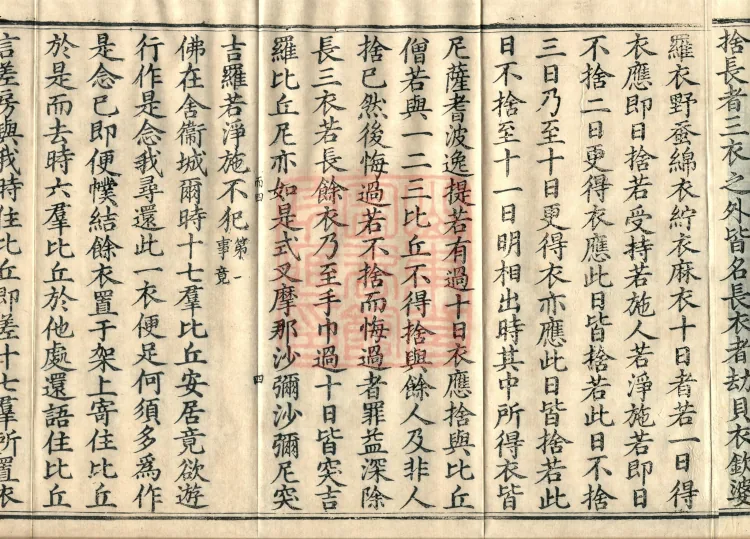 捨長者三衣之外皆名長衣者劫貝衣欽婆
羅衣野蚕綿衣紵衣麻衣十日者若一日得
衣應即日捨若受持若施人若淨施若即日
不捨二日更得衣應此日皆捨若此日不捨
三日乃至十日更得衣亦應此日皆捨若此
日不捨至十一日明相出時其中所得衣皆
尼薩耆波逸提若有過十日衣應捨與比丘
僧若與一二三比丘不得捨與餘人及非人
捨已然後悔過若不捨而悔過者罪益深除
長三衣若長餘衣乃至手巾過十日皆突吉
羅比丘尼亦如是式叉摩那沙彌沙彌尼突
而四
四
吉羅若淨施不犯第一事竟
佛在舍衞城爾時十七羣比丘安居竟欲遊
行作是念我尋還此一衣便足何須多為作
是念已即便幞結餘衣置于架上寄住比丘
於是而去時六羣比丘於他處還語住比丘
言差房與我時住比丘即差十七羣所置衣